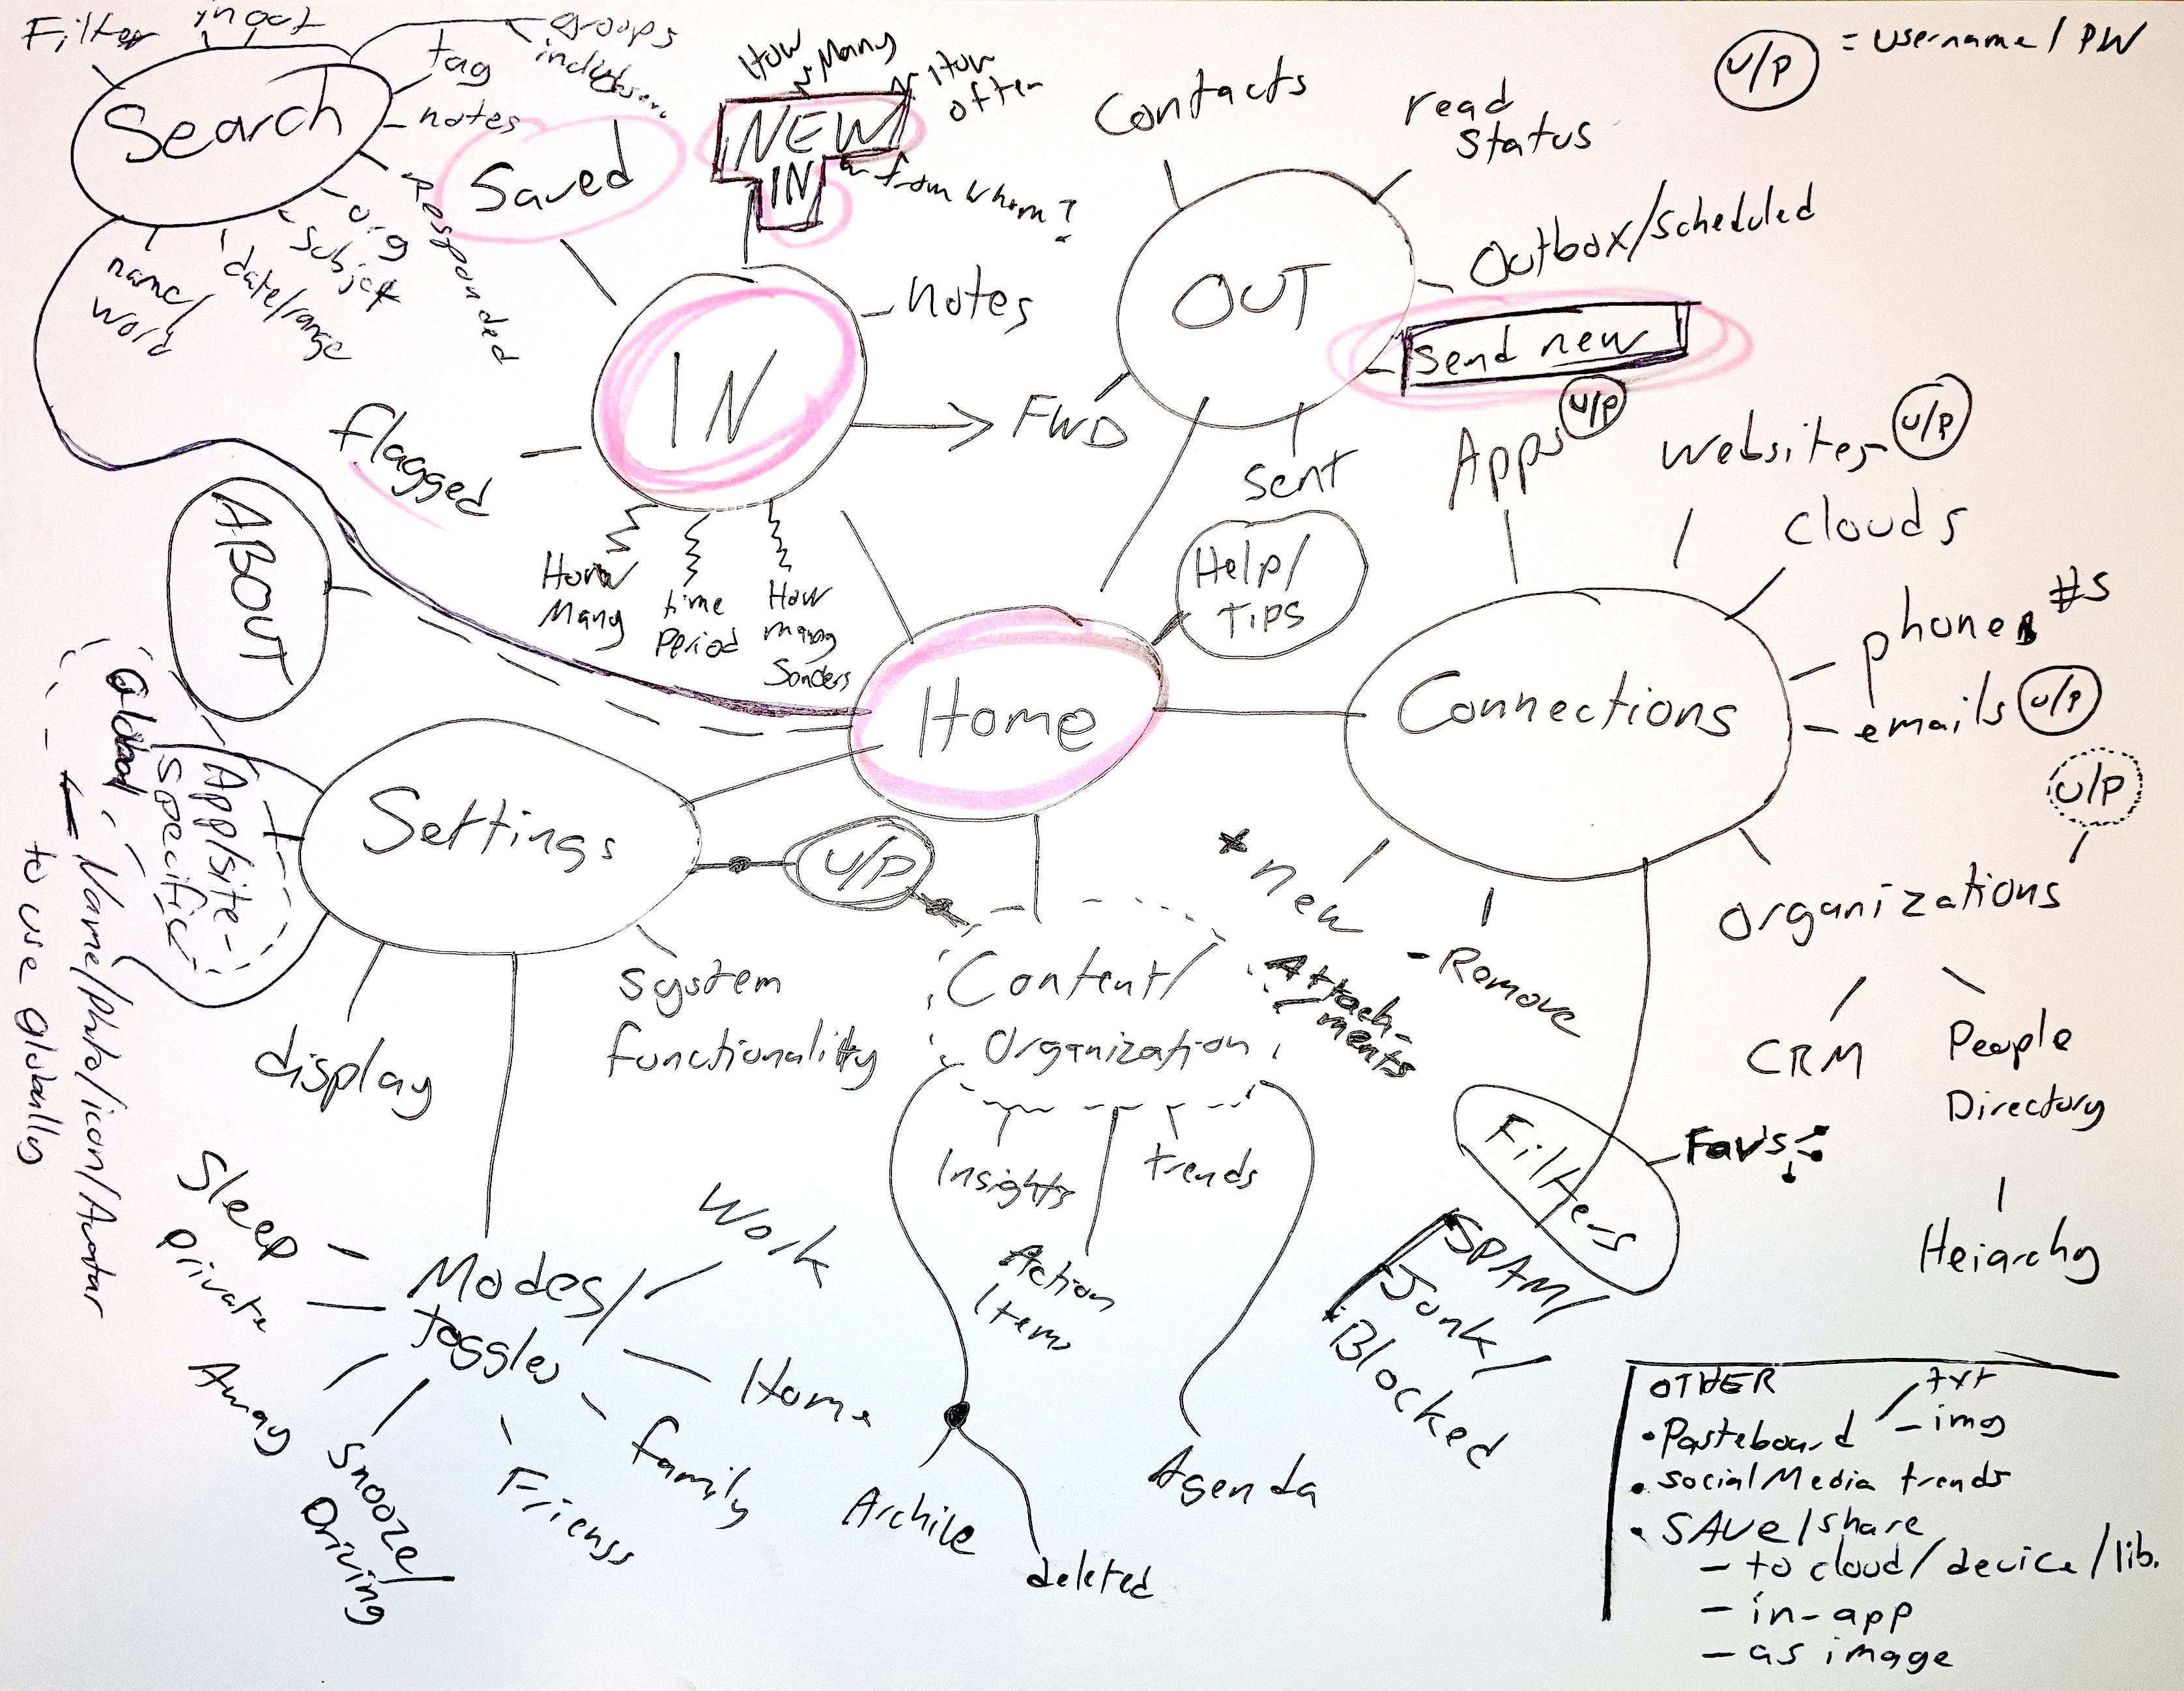 Filter
in out
groups
individ
tag
notes
Search
Responded
org
subject
date/range
name/
word
Saved
How
Many
How
often
NEW
IN
from whom?
IN
notes
FWD
flagged
How
Many
time
Period
How
many
Senders
Contacts
read
status
OUT
Outbox/scheduled
Send new
sent
U/P
= Username/PW
Help/
TIPS
Home
ABOUT
Apps
U/P
websites
U/P
clouds
phone #s
emails
U/P
U/P
Connections
organizations
CRM
People
Directory
Heiarchy
* new
- Remove
Filters
Fav's
SPAM/
Junk/
Blocked
Settings
U/P
Global
App/site-
specific
Name/photo/icon/Avatar
to use globally
display
system
functionality
Modes/
toggles
Sleep
private
Away
Snooze/
Driving
Frienss
family
Home
Work
Content/
Organization
Attach-
ments
Insights
trends
Action
Items
Archive
deleted
Agenda
OTHER
• Pasteboard
txt
- img
• social Media trends
• SAVe/share
- to cloud/device/lib.
- in-app
- as image